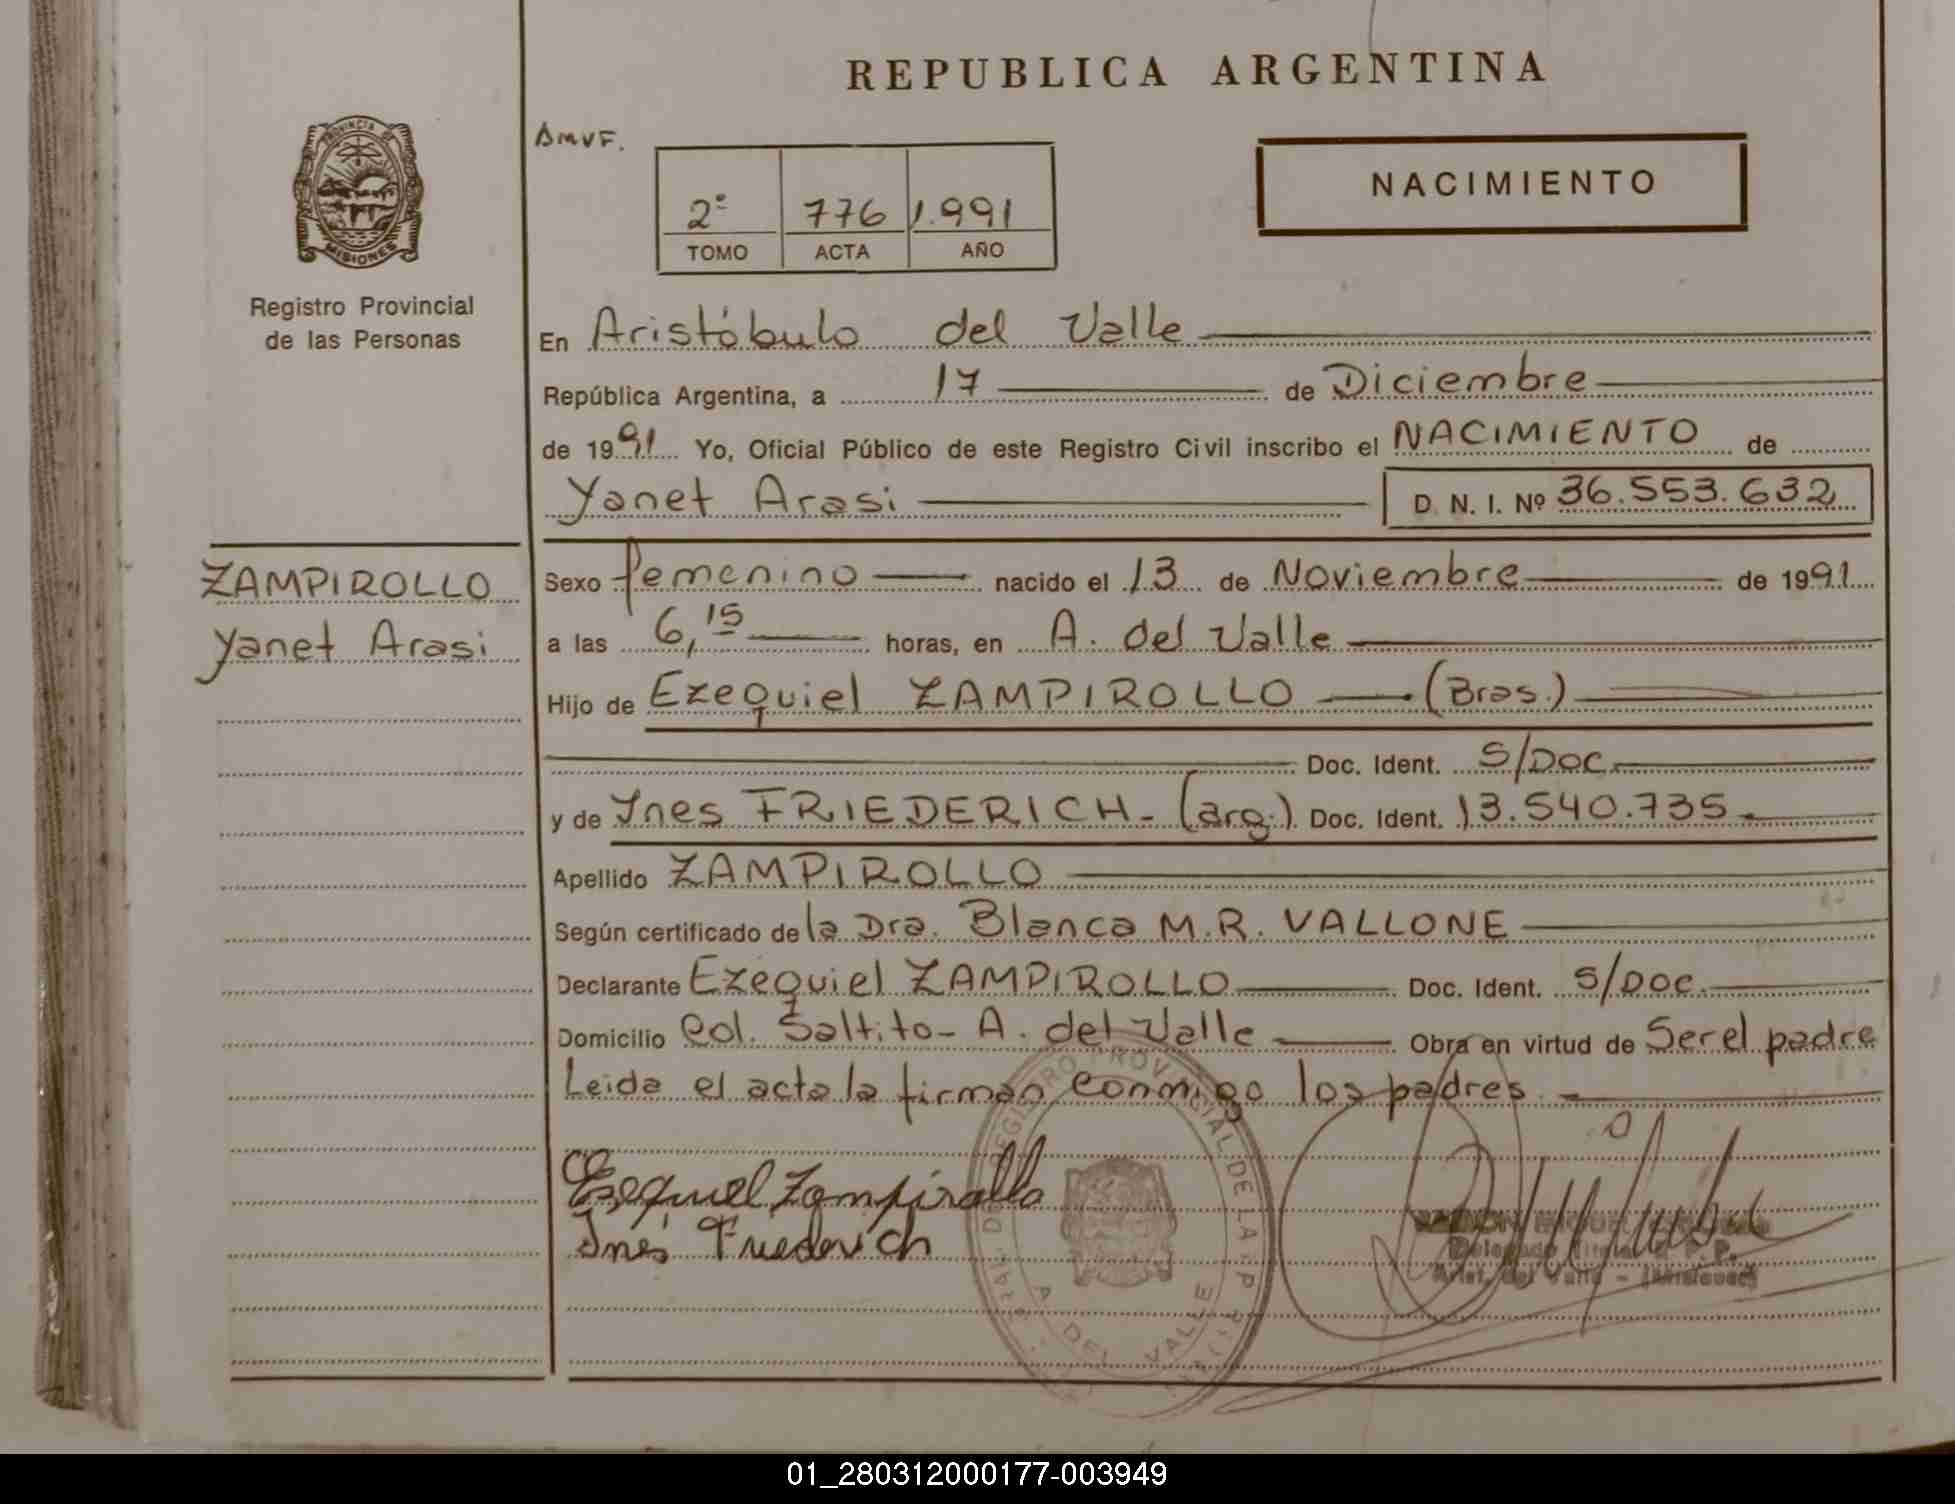 REPUBLICA ARGENTINA
PROVINCIA DE
MISIONES
Registro Provincial
de las Personas
2º 776 1.991
TOMO ACTA AÑO
NACIMIENTO
En Aristóbulo del Valle
República Argentina, a 17 de Diciembre
de 1991 Yo, Oficial Público de este Registro Civil inscribo el NACIMIENTO de
Yanet Arasi D. N. I. Nº 36.553.632
ZAMPIROLLO
Yanet Arasi
Sexo femenino nacido el 13 de Noviembre de 1991
a las 6,15 horas, en A. del Valle
Hijo de Ezequiel ZAMPIROLLO (Bras.)
Doc. Ident. S/Doc
y de Ynes FRIEDERICH - (arg.) Doc. Ident. 13.540.735
Apellido ZAMPIROLLO
Según certificado de la Dra. Blanca M.R. VALLONE
Declarante Ezequiel ZAMPIROLLO Doc. Ident. S/Doc
Domicilio Col. Saltito - A. del Valle Obra en virtud de Ser el padre
Leida el acta la firman conmigo los padres
Ezequiel Zampirollo
Inés Friederich
REGISTRO PROVINCIAL DE LA
A DEL VALLE
Delegado Titular R. P. P.
Arist. del Valle - (Misiones)
01_280312000177-003949